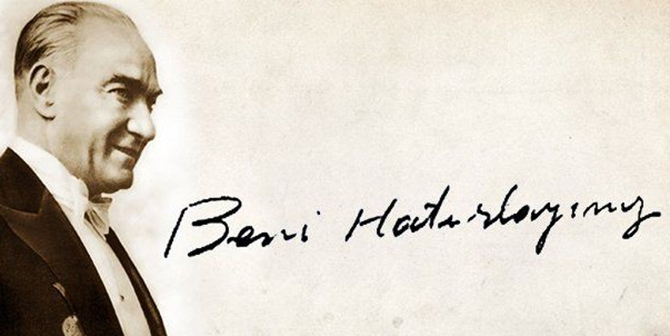 Beni Hatırlayınız